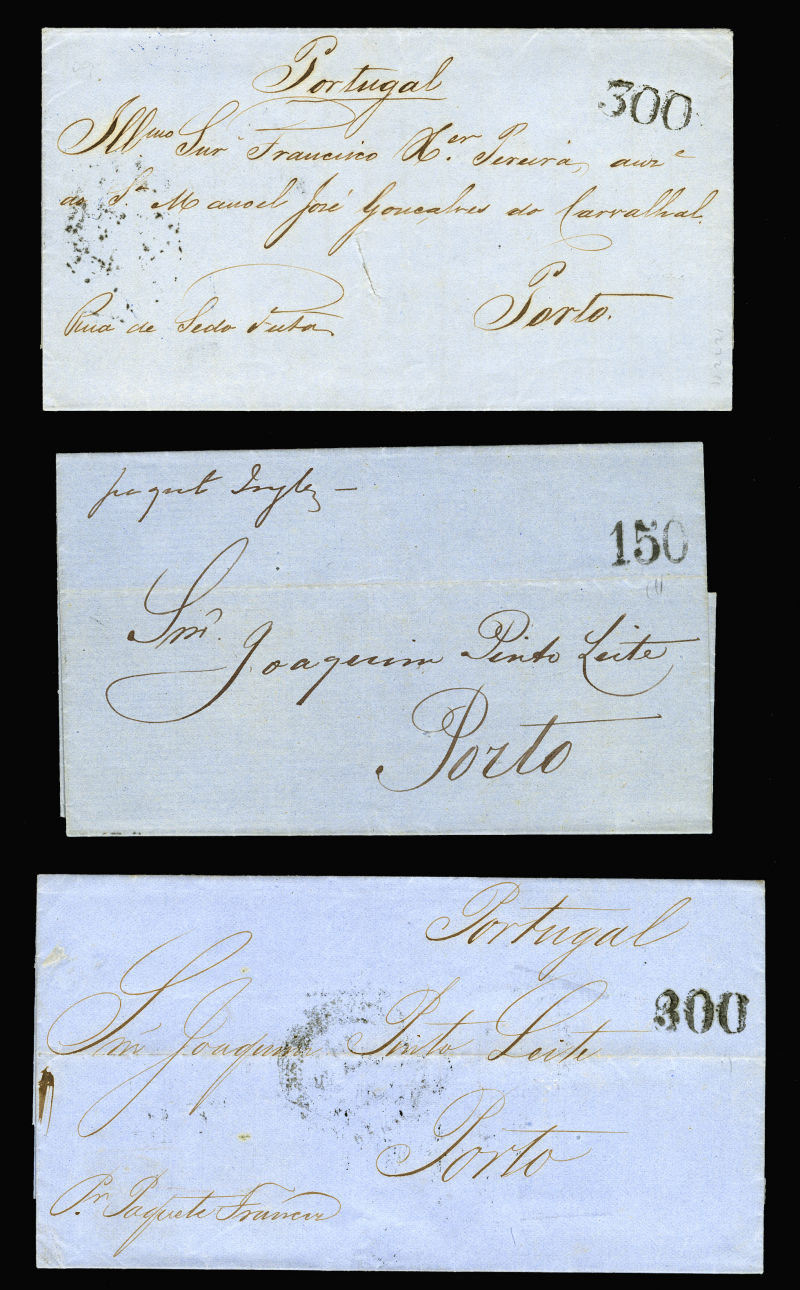 Portugal
300
Illmo Snr Francisco Xer. Pereira, auze
do Sr Manoel José Gonçalves do Carvalhal.
Rua de Sedo Futa
Porto.
paquet Inglez —
150
Snr. Joaquim Pinto Leite
Porto
Portugal
300
Snr Joaquim Pinto Leite
Porto
Pr Paquete Francez